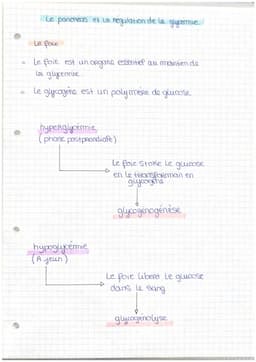 Le pancréas et la régulation de la glycémie
Le foie
- Le foie est un organe essentiel au maintien de
la glycémie.
- Le glycogène est un polymère de glucose.
hyperglycémie
(phase postprandiale)
Le foie stocke le glucose
en le transformant en
glycogène
glycogénogénèse
hypoglycémie
(A jeun)
Le foie libère le glucose
dans le sang
glycogénolyse